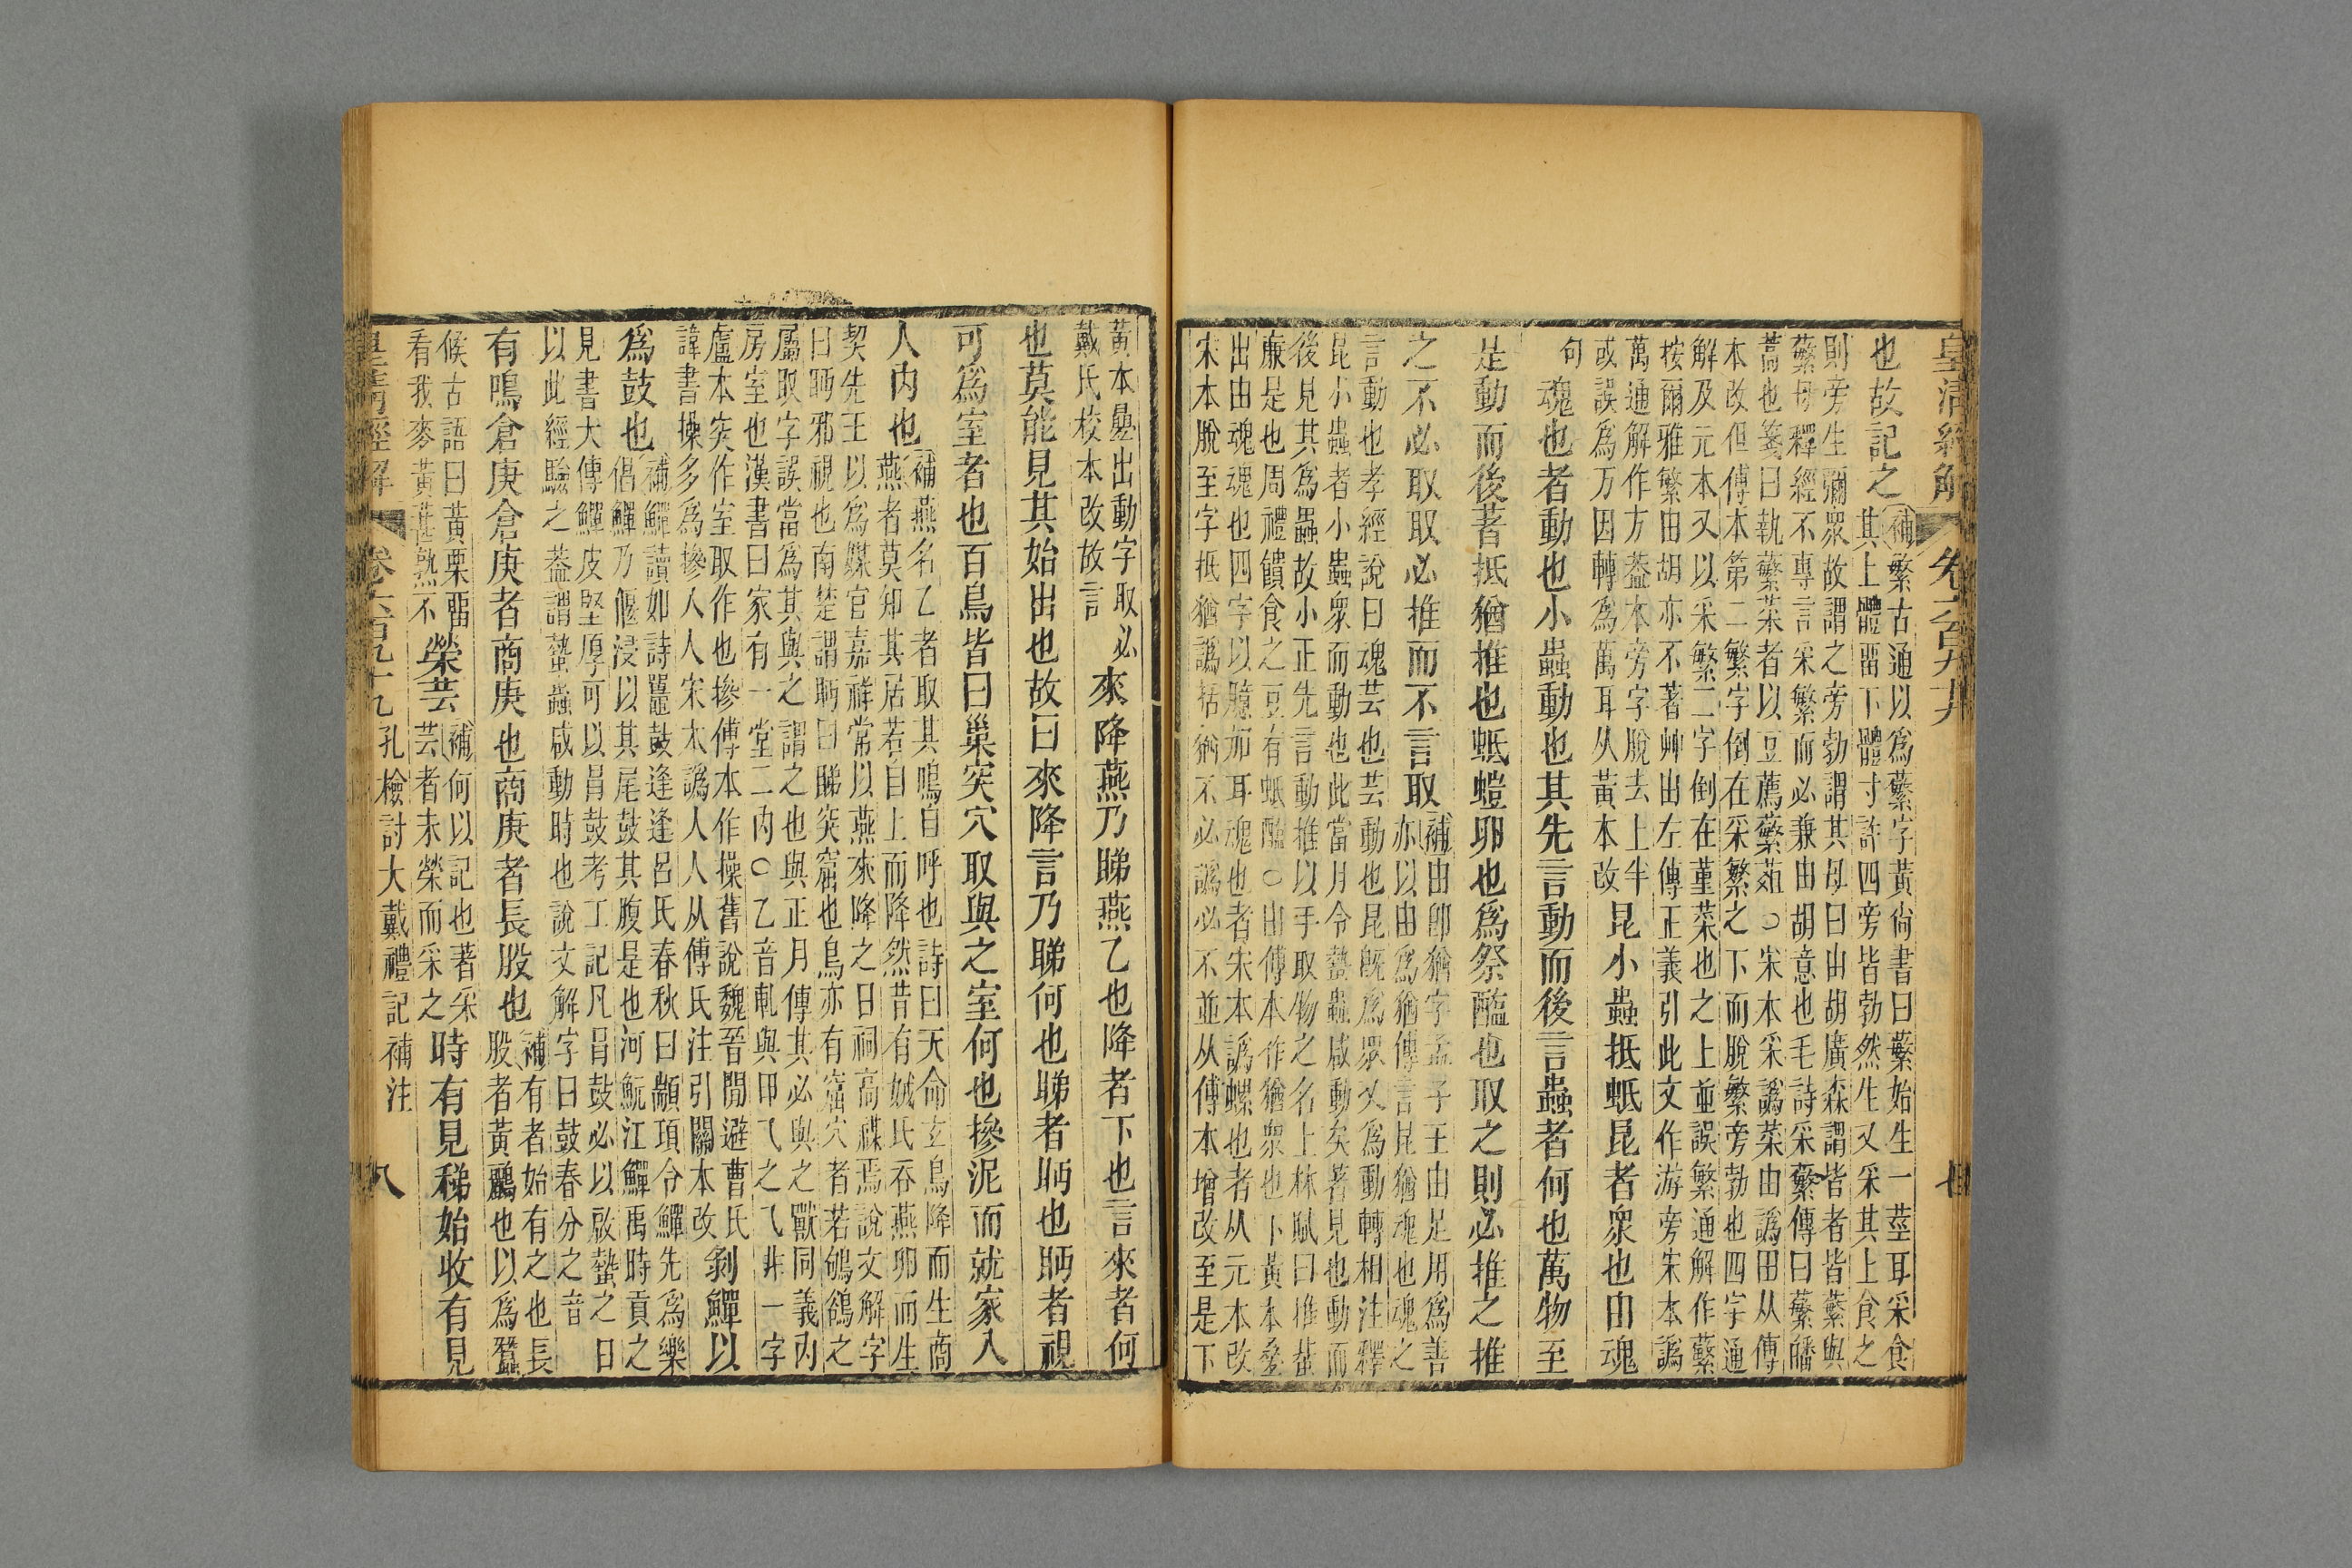 皇清經解
卷六百九十九
也故記之
補蘩古通以爲蘩字黃尙書曰蘩始生一莖耳采食
其上體畱下體寸許四旁皆勃然生又采其上食之
則旁生彌衆故謂之旁勃謂其母曰由胡廣森謂皆者皆蘩與
蘩母釋經不專言采繁而必兼由胡意也毛詩采蘩傳曰蘩皤
蒿也箋曰執蘩菜者以豆薦蘩葅○宋本采譌菜由譌田从傳
本改但傳本第二繁字倒在采繁之下而脫繁旁勃也四字通
解及元本又以采繁二字倒在堇菜也之上並誤繁通解作蘩
按爾雅繁由胡亦不著艸出左傳正義引此文作游旁宋本譌
萬通解作方葢本旁字脫去上半
或誤爲万因轉爲萬耳从黃本改
昆小蟲抵蚳昆者衆也由魂
句
魂也者動也小蟲動也其先言動而後言蟲者何也萬物至
是動而後著抵猶推也蚳螘卵也爲祭醢也取之則必推之推
之不必取取必推而不言取
補由卽猶字孟子王由足用爲善
亦以由爲猶傳言昆猶魂也魂之
言動也孝經說曰魂芸也芸動也昆旣爲衆又爲動轉相注釋
昆小蟲者小蟲衆而動也此當月令蟄蟲咸動矣著見也動而
後見其爲蟲故小正先言動推以手取物之名上林賦曰推蜚
廉是也周禮饋食之豆有蚳醢○由傳本作猶衆也下黃本疊
出由魂魂也四字以臆加耳魂也者宋本譌螺也者从元本改
宋本脫至字抵猶譌括猶不必譌必不並从傳本增改至是下
黃本疊出動字取必
戴氏校本改故言
來降燕乃睇燕乙也降者下也言來者何
也莫能見其始出也故曰來降言乃睇何也睇者眄也眄者視
可爲室者也百鳥皆曰巢突穴取與之室何也摻泥而就家入
人內也
補燕名乙者取其鳴自呼也詩曰天命玄鳥降而生商
燕者莫知其居若自上而降然昔有娀氏呑燕卵而生
契先王以爲媒官嘉祥常以燕來降之日祠高禖焉說文解字
曰眄邪視也南楚謂眄曰睇突窟也鳥亦有窟穴者若鴝鵒之
屬取字誤當爲其與之謂之也與正月傳其必與之獸同義內
房室也漢書曰家有一堂二內○乙音軋與甲乁之乁非一字
盧本突作室取作也摻傳本作操舊說魏晉閒避曹氏
諱書操多爲摻人人宋本譌人人从傳氏注引關本改
剝鱓以
爲鼓也
補鱓讀如詩鼉鼓逢逢呂氏春秋曰顓頊令鱓先爲樂
倡鱓乃偃浸以其尾鼓其腹是也河魭江鱓禹時貢之
見書大傳鱓皮堅厚可以冒鼓考工記凡冒鼓必以啟蟄之日
以此經驗之葢謂蟄蟲咸動時也說文解字曰鼓春分之音
有鳴倉庚倉庚者商庚也商庚者長股也
補有者始有之也長
股者黃鸝也以爲蠶
候古語曰黃栗畱
看我麥黃葚熟不
榮芸
補何以記也著采
芸者未榮而采之
時有見稊始收有見
皇清經解
卷六百九十九
孔檢討大戴禮記補注
八